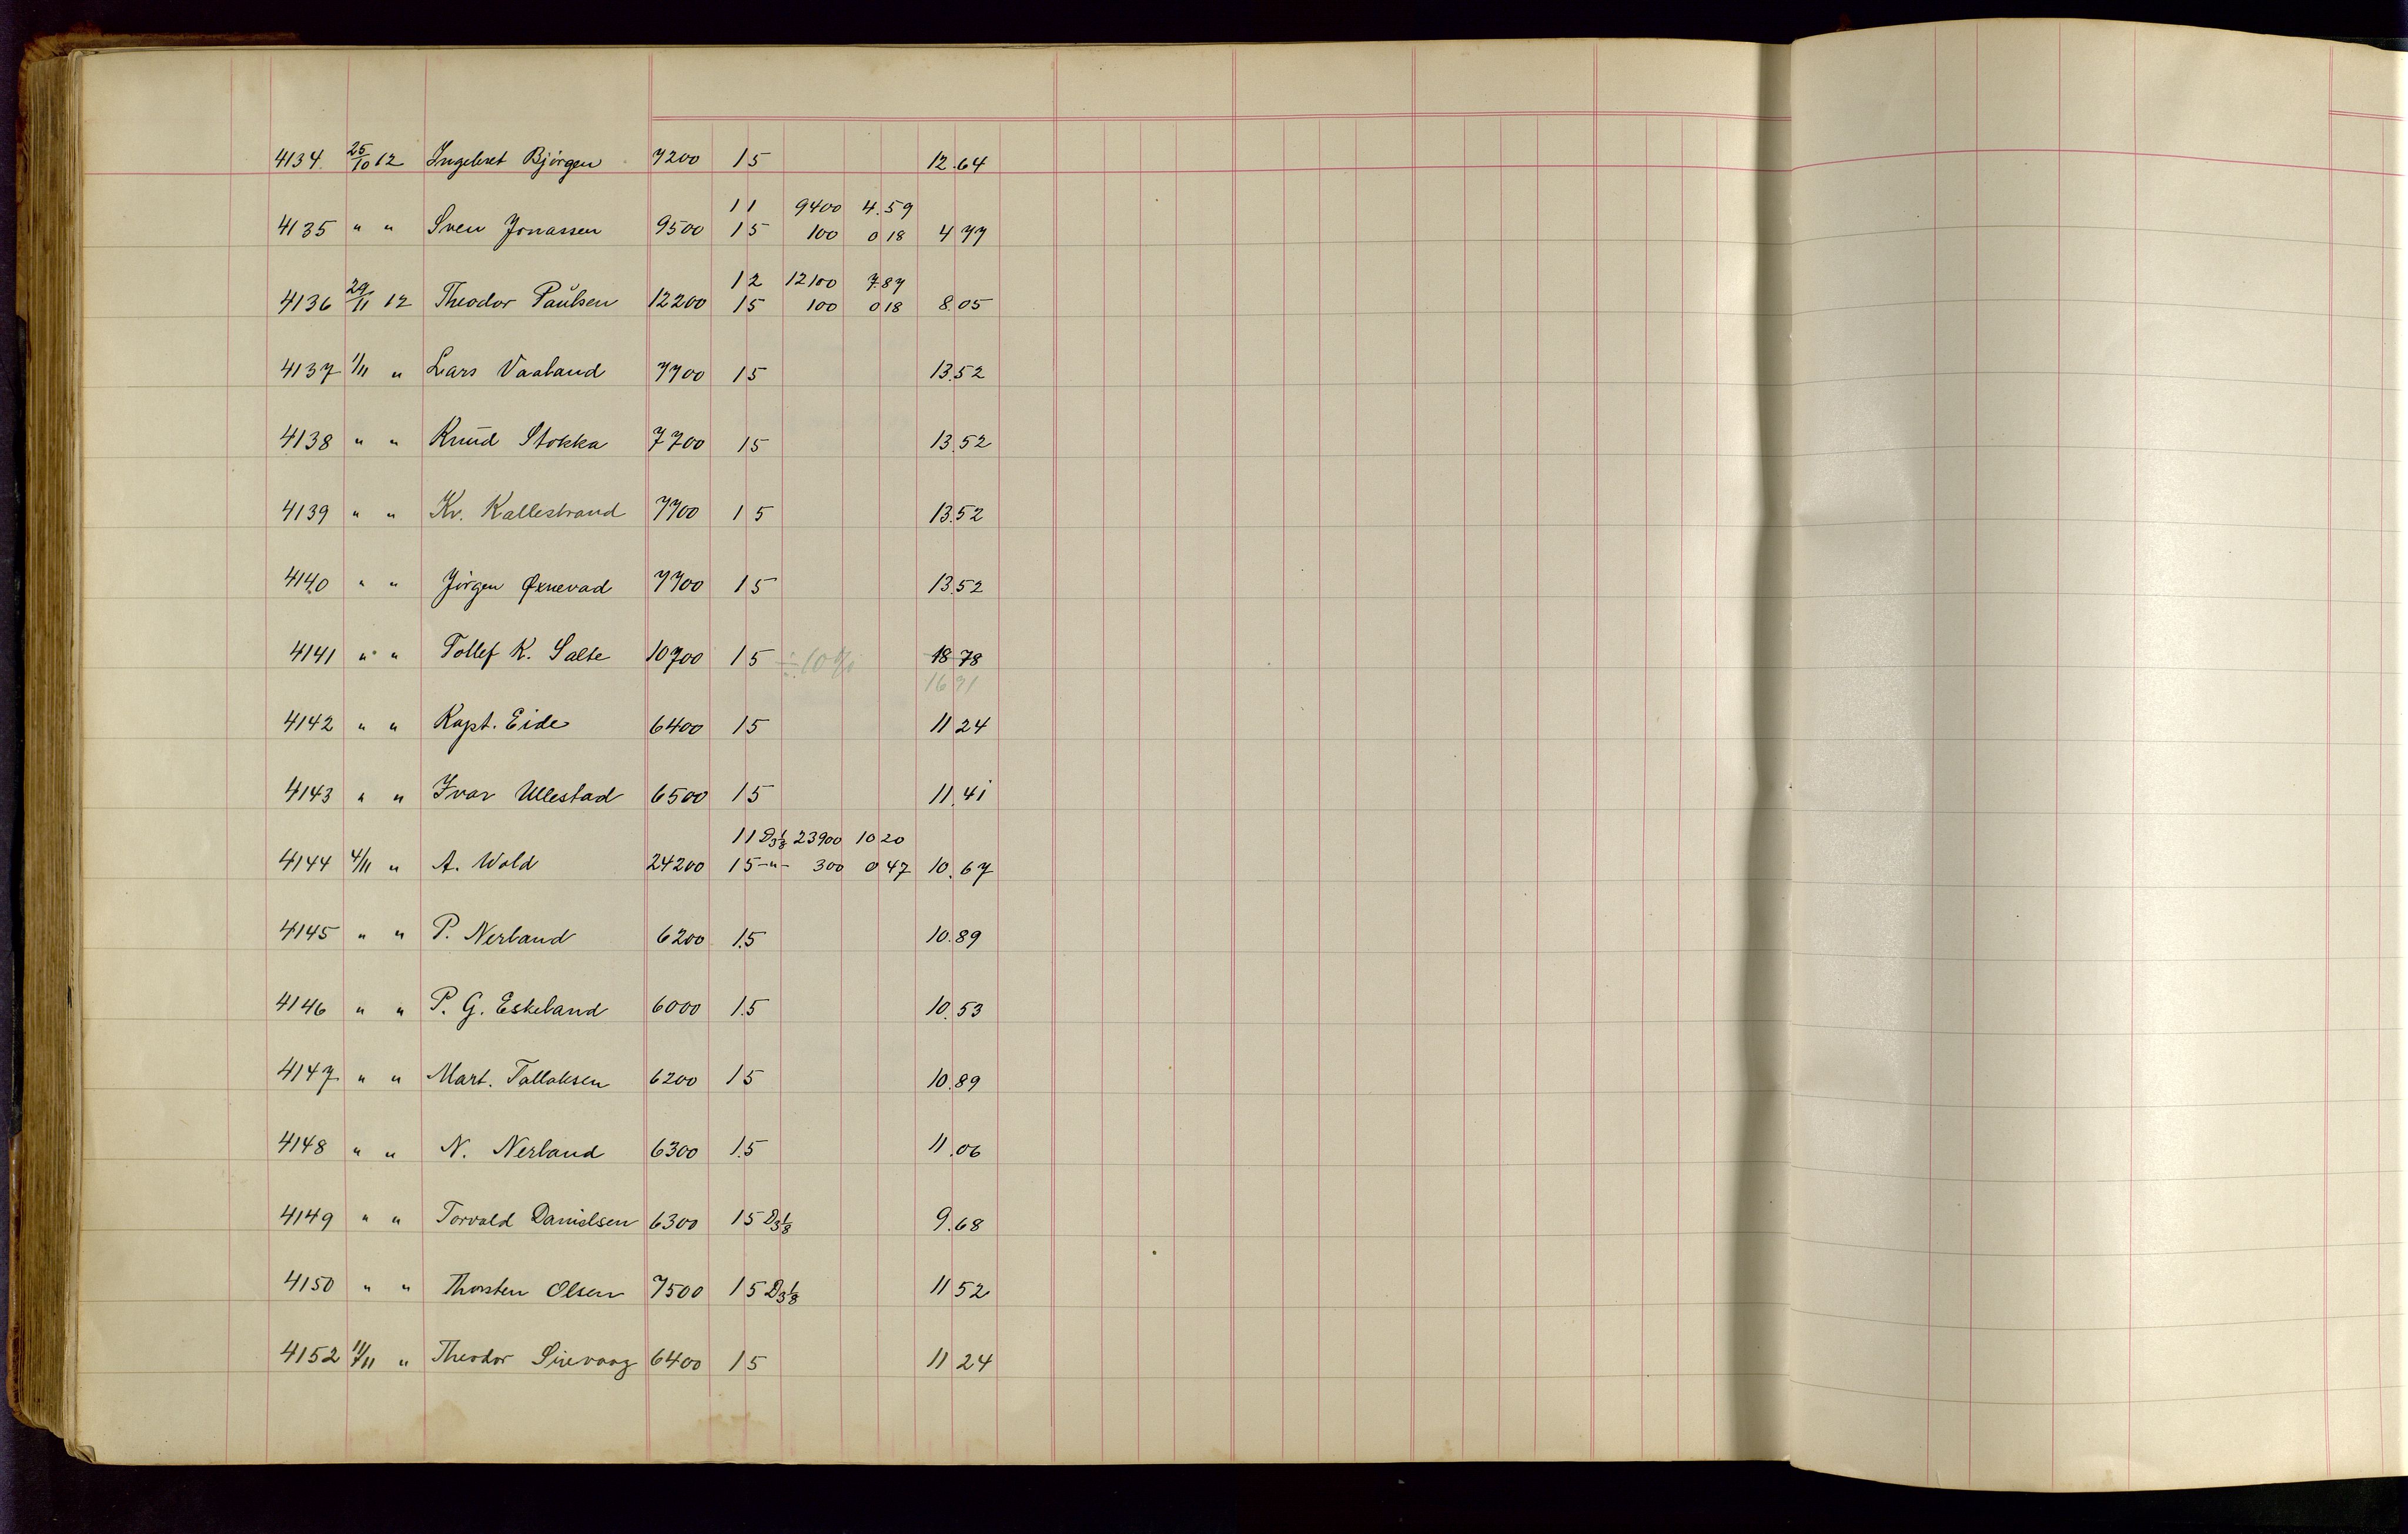 4134 25/10 12 Ingebret Bjørgen 7200 15 12.64
11 9400 4.59
4135 " " Sven Jonassen 9500 15 100 0 18 4 77
12 12100 7.87
4136 29/11 12 Theodor Paulsen 12200 15 100 0 18 8.05
4137 1/11 " Lars Vaaland 7700 15 13.52
4138 " " Knud Stokka 7700 15 13.52
4139 " " Kr. Kallestrand 7700 15 13.52
4140 " " Jørgen Øxnevad 7700 15 13.52
4141 " " Tollef K. Salte 10700 15 18 78
4142 " " Kapt. Eide 6400 15 11 24
4143 " " Ivar Ullestad 6500 15 11.41
11 D3⅓ 23900 10 20
4144 4/11 " A. Wold 24200 15 -"- 300 0 47 10.67
4145 " " P. Nerland 6200 15 10.89
4146 " " P. G. Eskeland 6000 15 10.53
4147 " " Mart. Tallaksen 6200 15 10.89
4148 " " N. Nerland 6300 15 11.06
4149 " " Torvald Danielsen 6300 15 D3⅛ 9.68
4150 " " Thorsten Olsen 7500 15 D3⅛ 11 52
4152 11/11 " Theodor Sirevaag 6400 15 11 24